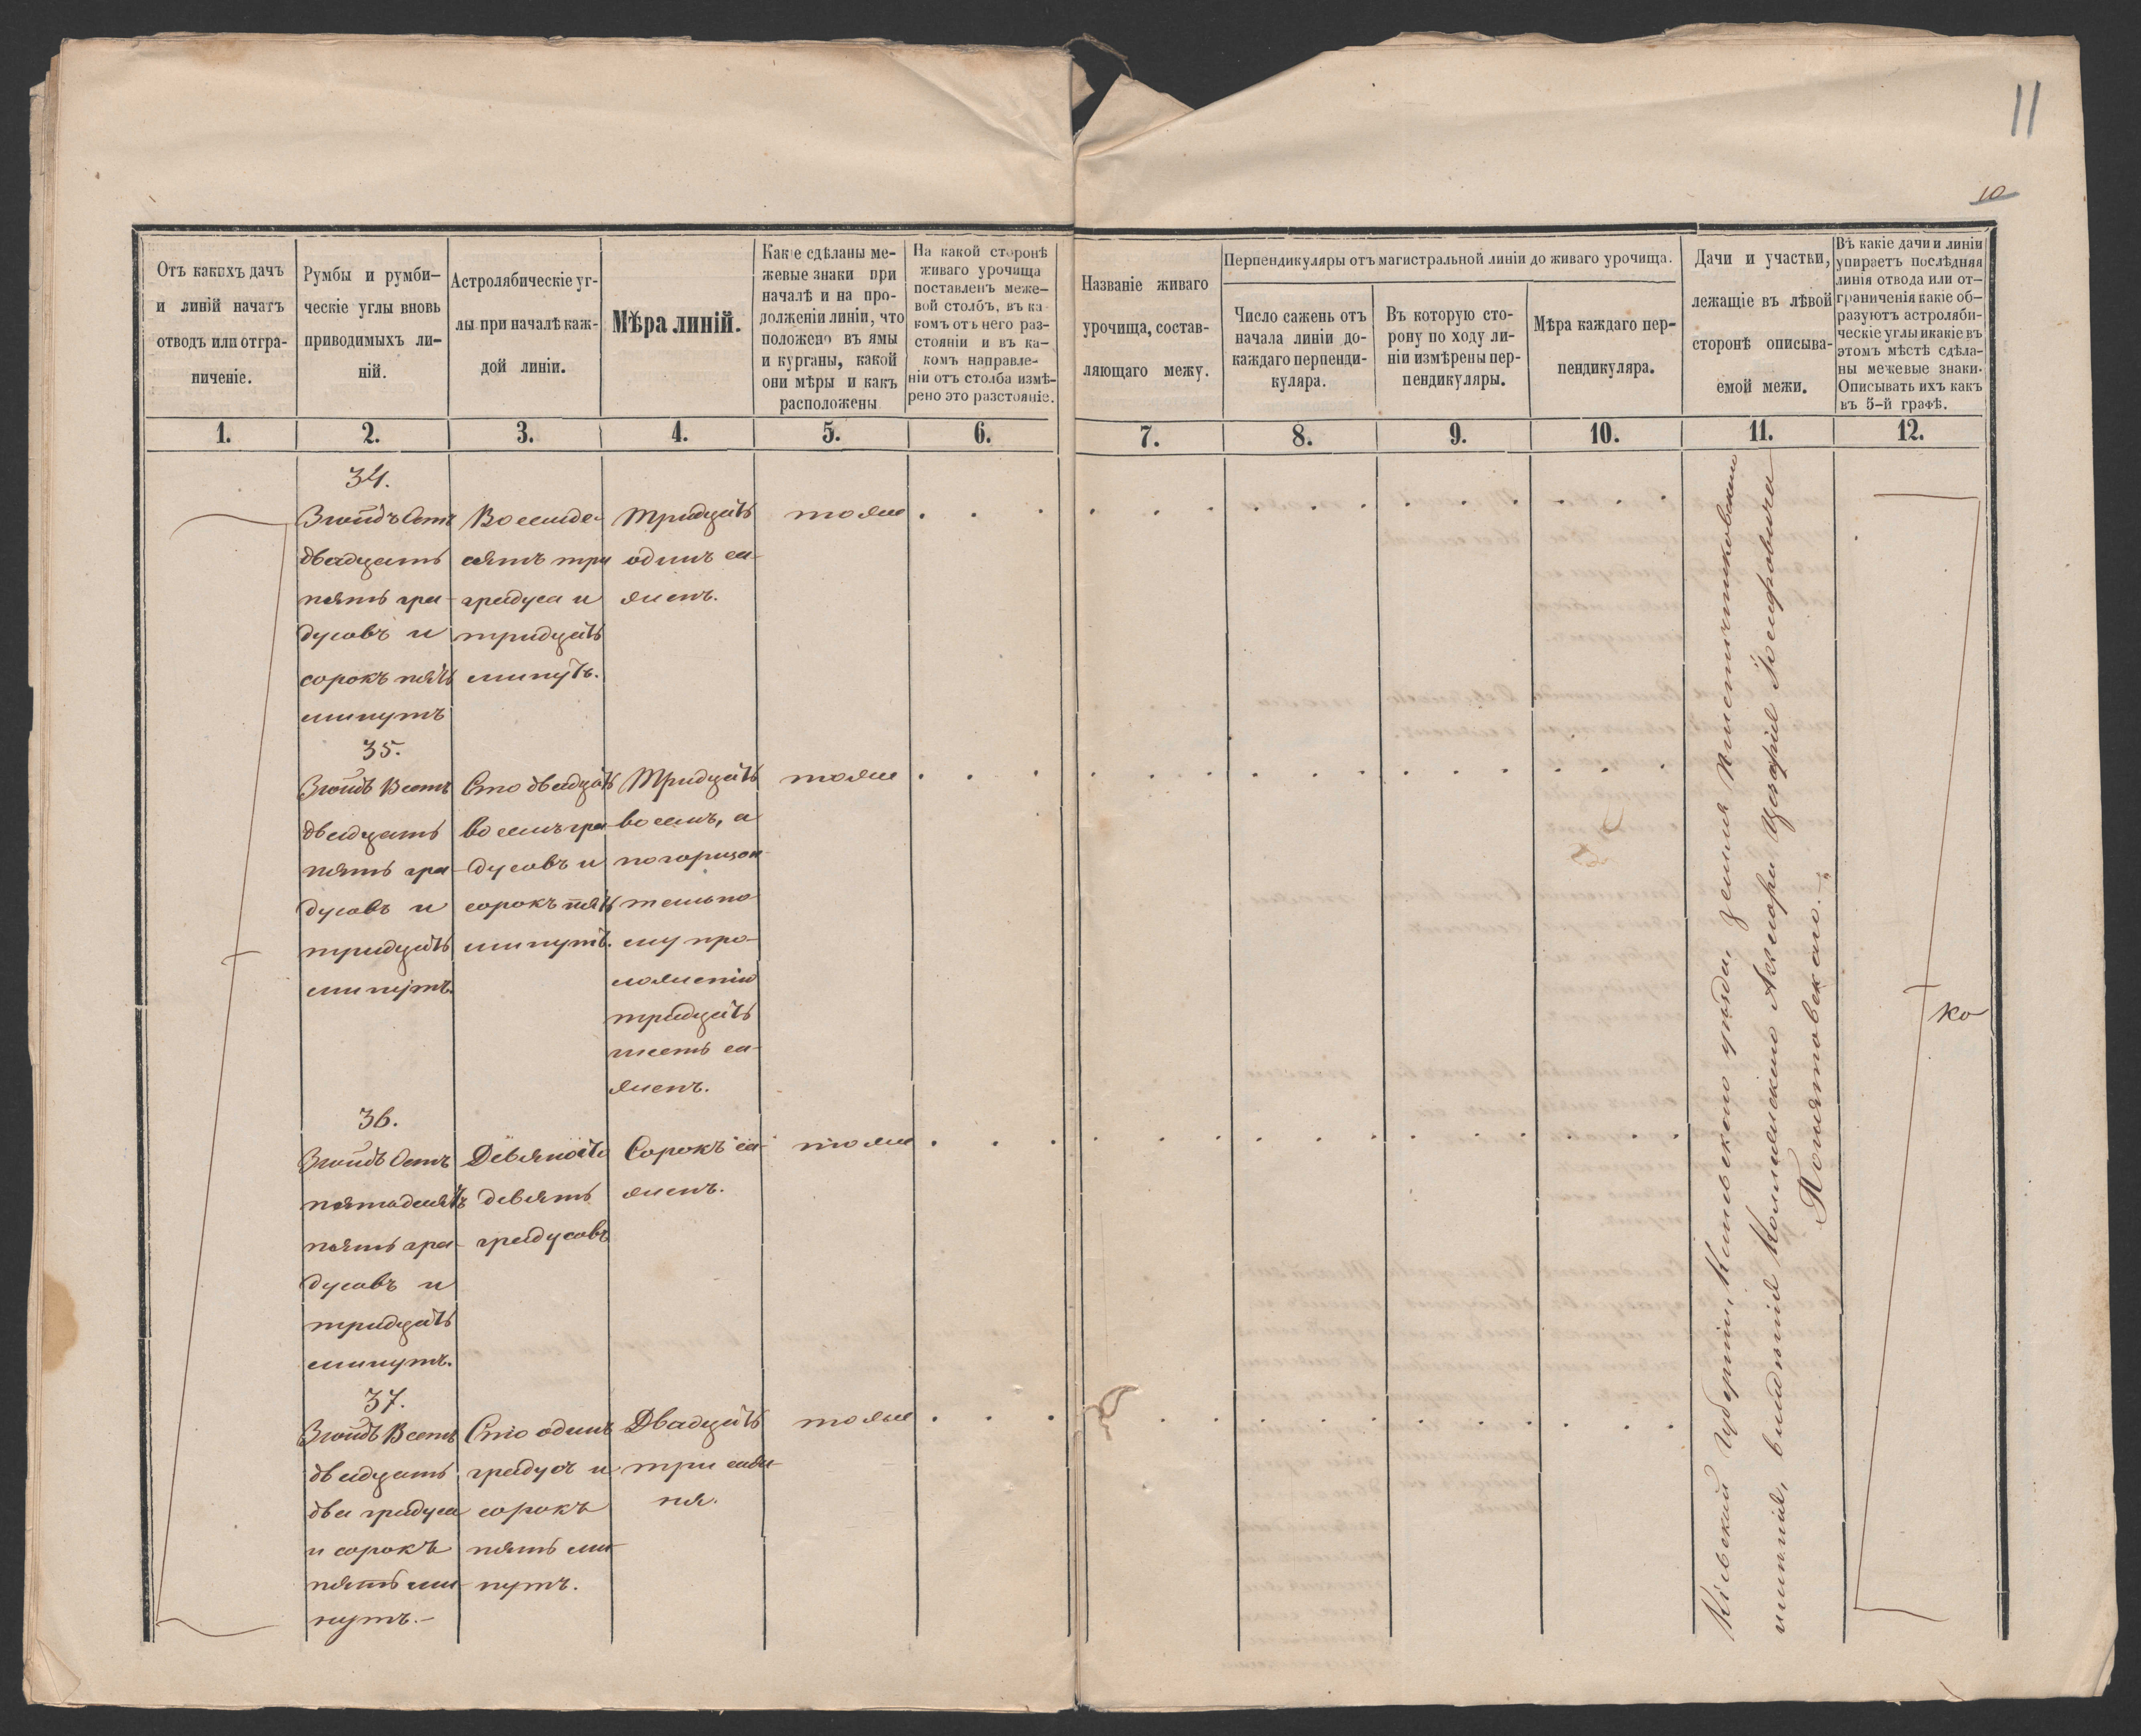 11
10
Отъ какихъ дачъ
и линій начатъ
отводъ или отгра-
ниченіе.
Румбы и румби-
ческіе углы вновь
приводимыхъ ли-
ній.
Астролябическіе уг-
лы при началѣ каж-
дой линіи.
Мѣра линій.
Какіе сдѣланы ме-
жевые знаки при
началѣ и на про-
долженіи линіи, что
положено въ ямы
и курганы, какой
они мѣры и какъ
расположены
На какой сторонѣ
живаго урочища
поставленъ меже-
вой столбъ, въ ка
комъ отъ него раз-
стояніи и въ ка-
комъ направле-
ніи отъ столба измѣ-
рено это разстояніе.
Названіе живаго
урочища, состав-
ляющаго межу.
Перпендикуляры отъ магистральной линіи до живаго урочища.
Число сажень отъ
начала линіи до-
каждаго перпенди-
куляра.
Въ которую сто-
рону по ходу ли-
ніи измѣрены пер-
пендикуляры.
Мѣра каждаго пер-
пендикуляра.
Дачи и участки,
лежащіе въ лѣвой
сторонѣ описыва-
емой межи.
Въ какіе дачи и линіи
упираетъ послѣдняя
линія отвода или от-
граниченія какіе об-
разуютъ астроляби-
ческіе углы и какіе въ
этомъ мѣстѣ сдѣла-
ны межевые знаки.
Описывать ихъ какъ
въ 5-й графѣ.
1. 2. 3. 4. 5. 6. 7. 8. 9. 10. 11. 12.
34.
Зюйдъ Остъ
двадцать
пять гра-
дусовъ и
сорокъ пять
минутъ
Восемьде-
сятъ три
градуса и
тридцать
минутъ.
Тридцать
одинъ са-
жень.
тоже
35.
Зюйдъ Вестъ
двадцать
пять гра-
дусовъ и
тридцать
минутъ.
Сто двадцать
восемь гра-
дусовъ и
сорокъ пять
минутъ.
Тридцать
восемь, а
по горизон-
тельно
му про-
ложенію
тридцать
шесть са-
жень.
тоже
36.
Зюйдъ Остъ
пятьдесятъ
пять гра-
дусовъ и
тридцать
минутъ.
Девяносто
девять
градусовъ
Сорокъ са-
жень.
тоже
37.
Зюйдъ Вестъ
двадцать
два градуса
и сорокъ
пять ми-
нутъ.-
Сто одинъ
градусъ и
сорокъ
пять ми-
нутъ.
Двадцать
три саже-
ня.
тоже
Кіевской губерніи, Каневскаго уѣзда, земля
линія, владѣнія Коллежскаго Ассесора Цезарія Іосифовича
Понятовскаго.-
ко